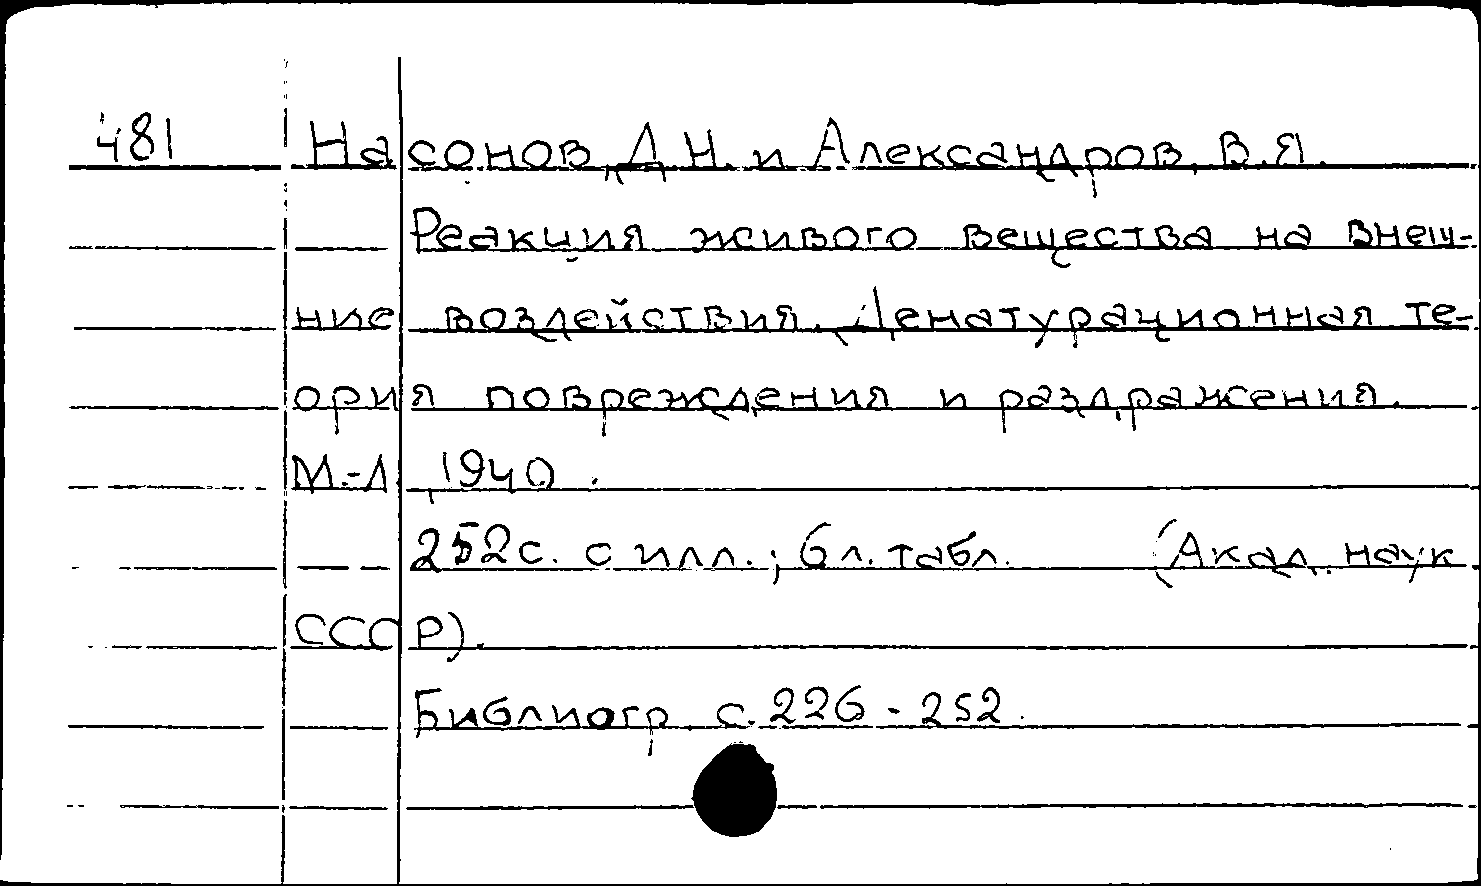 481 Насонов, Д.Н. и Александров, В.Я.
Реакция живого вещества на внеш-
ние воздействия. Денатурационная те-
ория повреждения и раздражения.
М.-Л., 1940.
252с. с илл.; 6 л. табл. (Акад. наук
СССР).
Библиогр. с. 226-252.